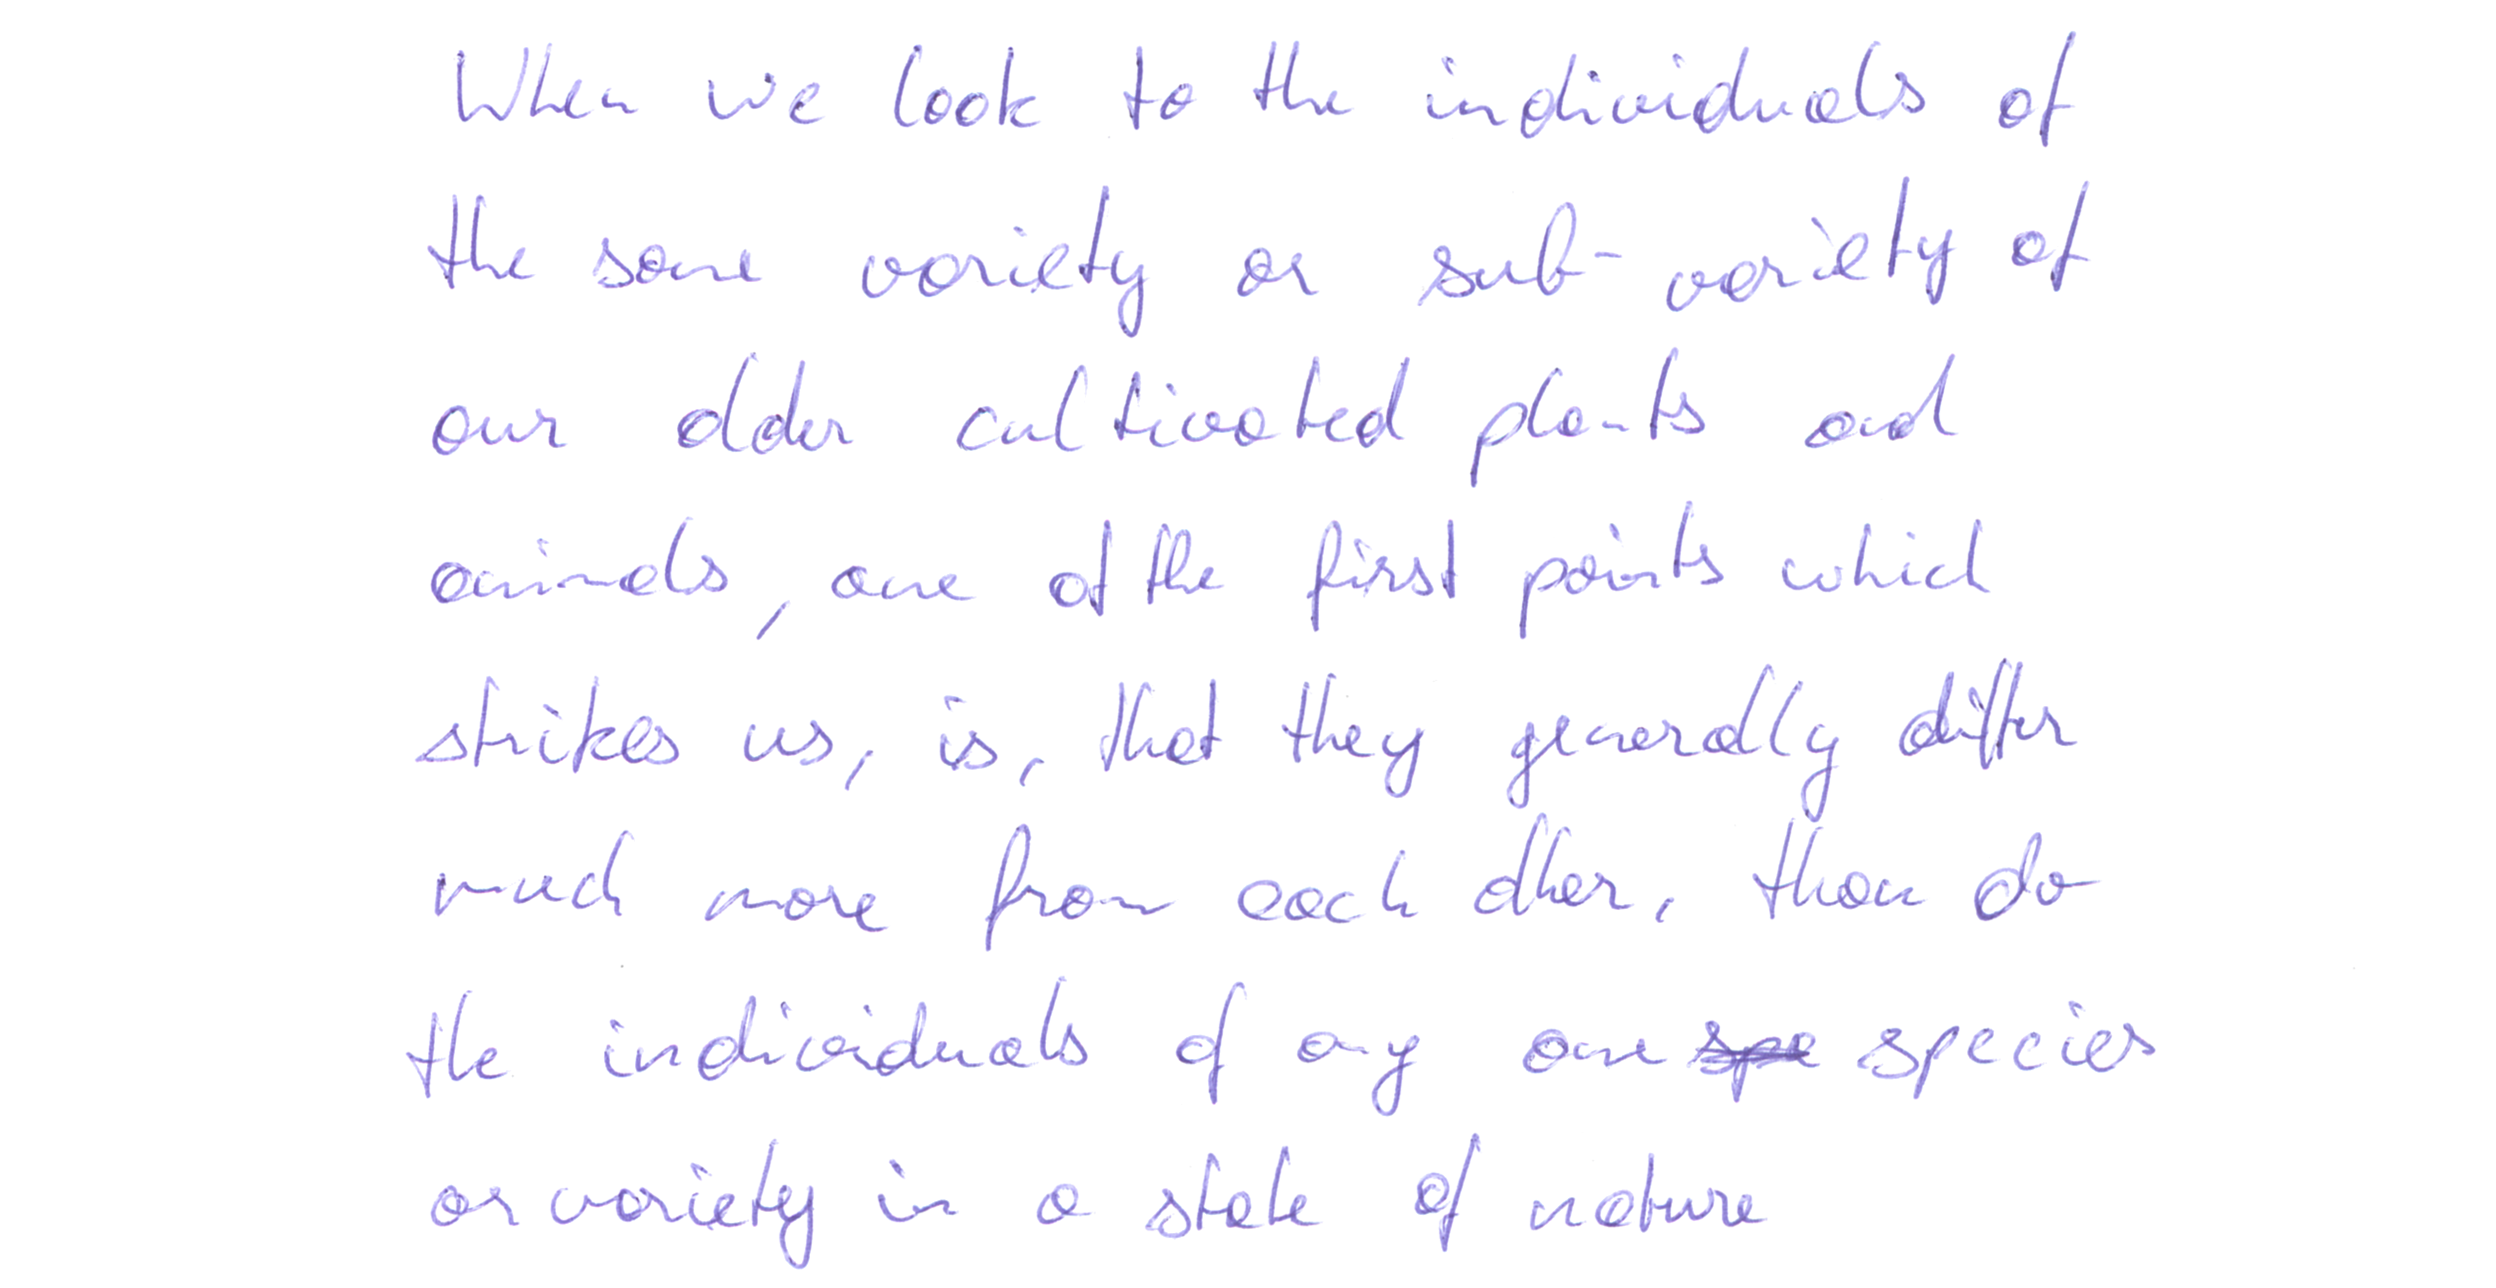 When we look to the individuals of
the same variety or sub-variety of
our older cultivated plants and
animals, one of the first points which
strikes us, is, that they generally differ
much more from each other, than do
the individuals of any one spe species
or variety in a state of nature